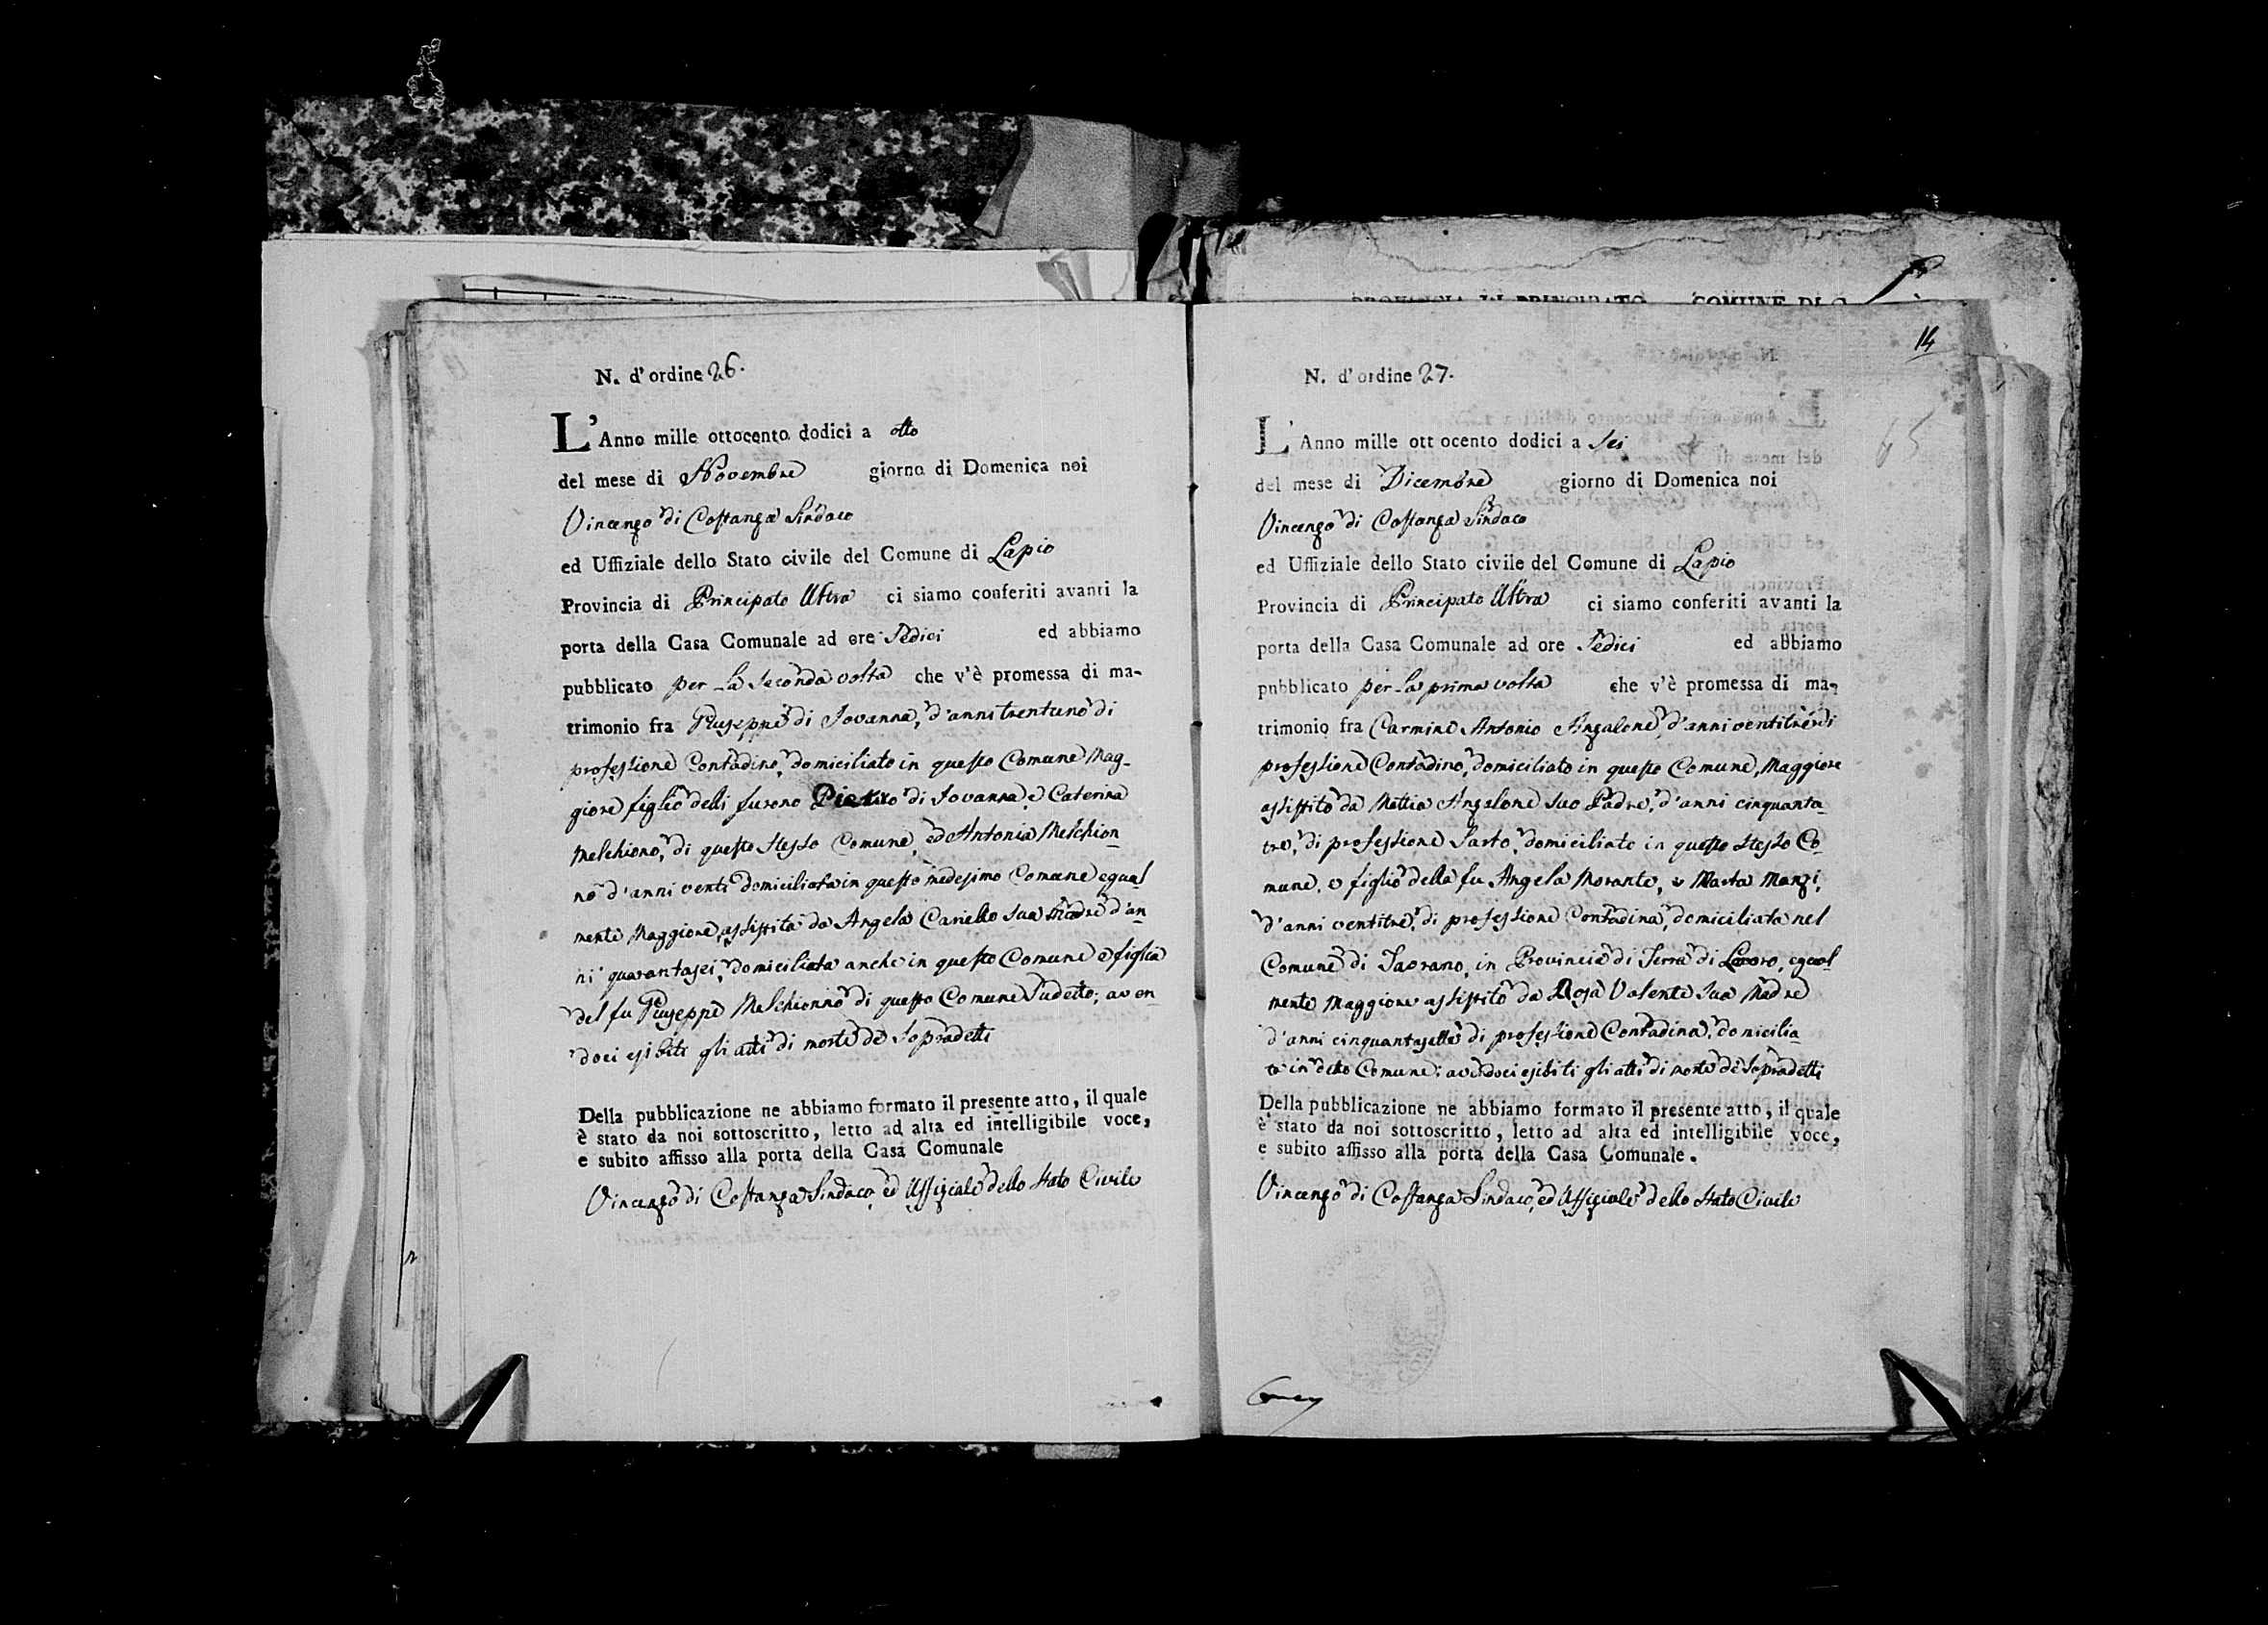 N. d'ordine 26.
L'Anno mille ottocento dodici a otto
del mese di Novembre giorno di Domenica noi
Vincenzo di Costanza Sindaco
ed Uffiziale dello Stato civile del Comune di Lapio
Provincia di Principato Ultra ci siamo conferiti avanti la
porta della Casa Comunale ad ore Sedici ed abbiamo
pubblicato per la Seconda volta che v'è promessa di ma-
trimonio fra Giuseppe di Iovanna, d'anni trentuno di
professione Contadino, domiciliato in questo Comune Mag-
giore figlio delli furono di Iovanna, e Caterina
Melchiono, di questo stesso Comune, ed Antonia Melchion
no d'anni venti domiciliata in questo medesimo Comune egual
mente Maggiore, assistita da Angela Cariello sua Madre d'an
ni quarantasei, domiciliata anche in questo Comune e figlia
del fu Giuseppe Melchionno di questo Comune Sudetto; aven
doci esibiti gli atti di morte de Sopradetti
Della pubblicazione ne abbiamo formato il presente atto, il quale
è stato da noi sottoscritto, letto ad alta ed intelligibile voce,
e subito affisso alla porta della Casa Comunale
Vincenzo di Costanza Sindaco, ed Uffiziale dello Stato Civile
14
65
N. d'ordine 27.
L'Anno mille ott ocento dodici a Sei
del mese di Dicembre giorno di Domenica noi
Vincenzo di Costanza Sindaco
ed Uffiziale dello Stato civile del Comune di Lapio
Provincia di Principato Ultra ci siamo conferiti avanti la
porta della Casa Comunale ad ore Sedici ed abbiamo
pubblicato per la prima volta che v'è promessa di ma-
trimonio fra Carmine Antonio Angalone, d'anni ventitre di
professione Contadino, domiciliato in questo Comune, Maggiore
assistito da Mattia Angalone suo Padre, d'anni cinquanta
tre, di professione Sarto, domiciliato in questo stesso Co
mune, e figlio della fu Angela Morante, e Marta Manzi,
d'anni ventitre, di professione Contadina, domiciliata nel
Comune di in Provincia di Terra di Lavoro, egual
mente Maggiore assistito da Rosa Valente sua Madre
d'anni cinquantasette di professione Contadina, domicilia
ta in detto Comune; avendoci esibiti gli atti di morte de Sopradetti
Della pubblicazione ne abbiamo formato il presente atto, il quale
è stato da noi sottoscritto, letto ad alta ed intelligibile voce,
e subito affisso alla porta della Casa Comunale.
Vincenzo di Costanza Sindaco, ed Uffiziale dello Stato Civile